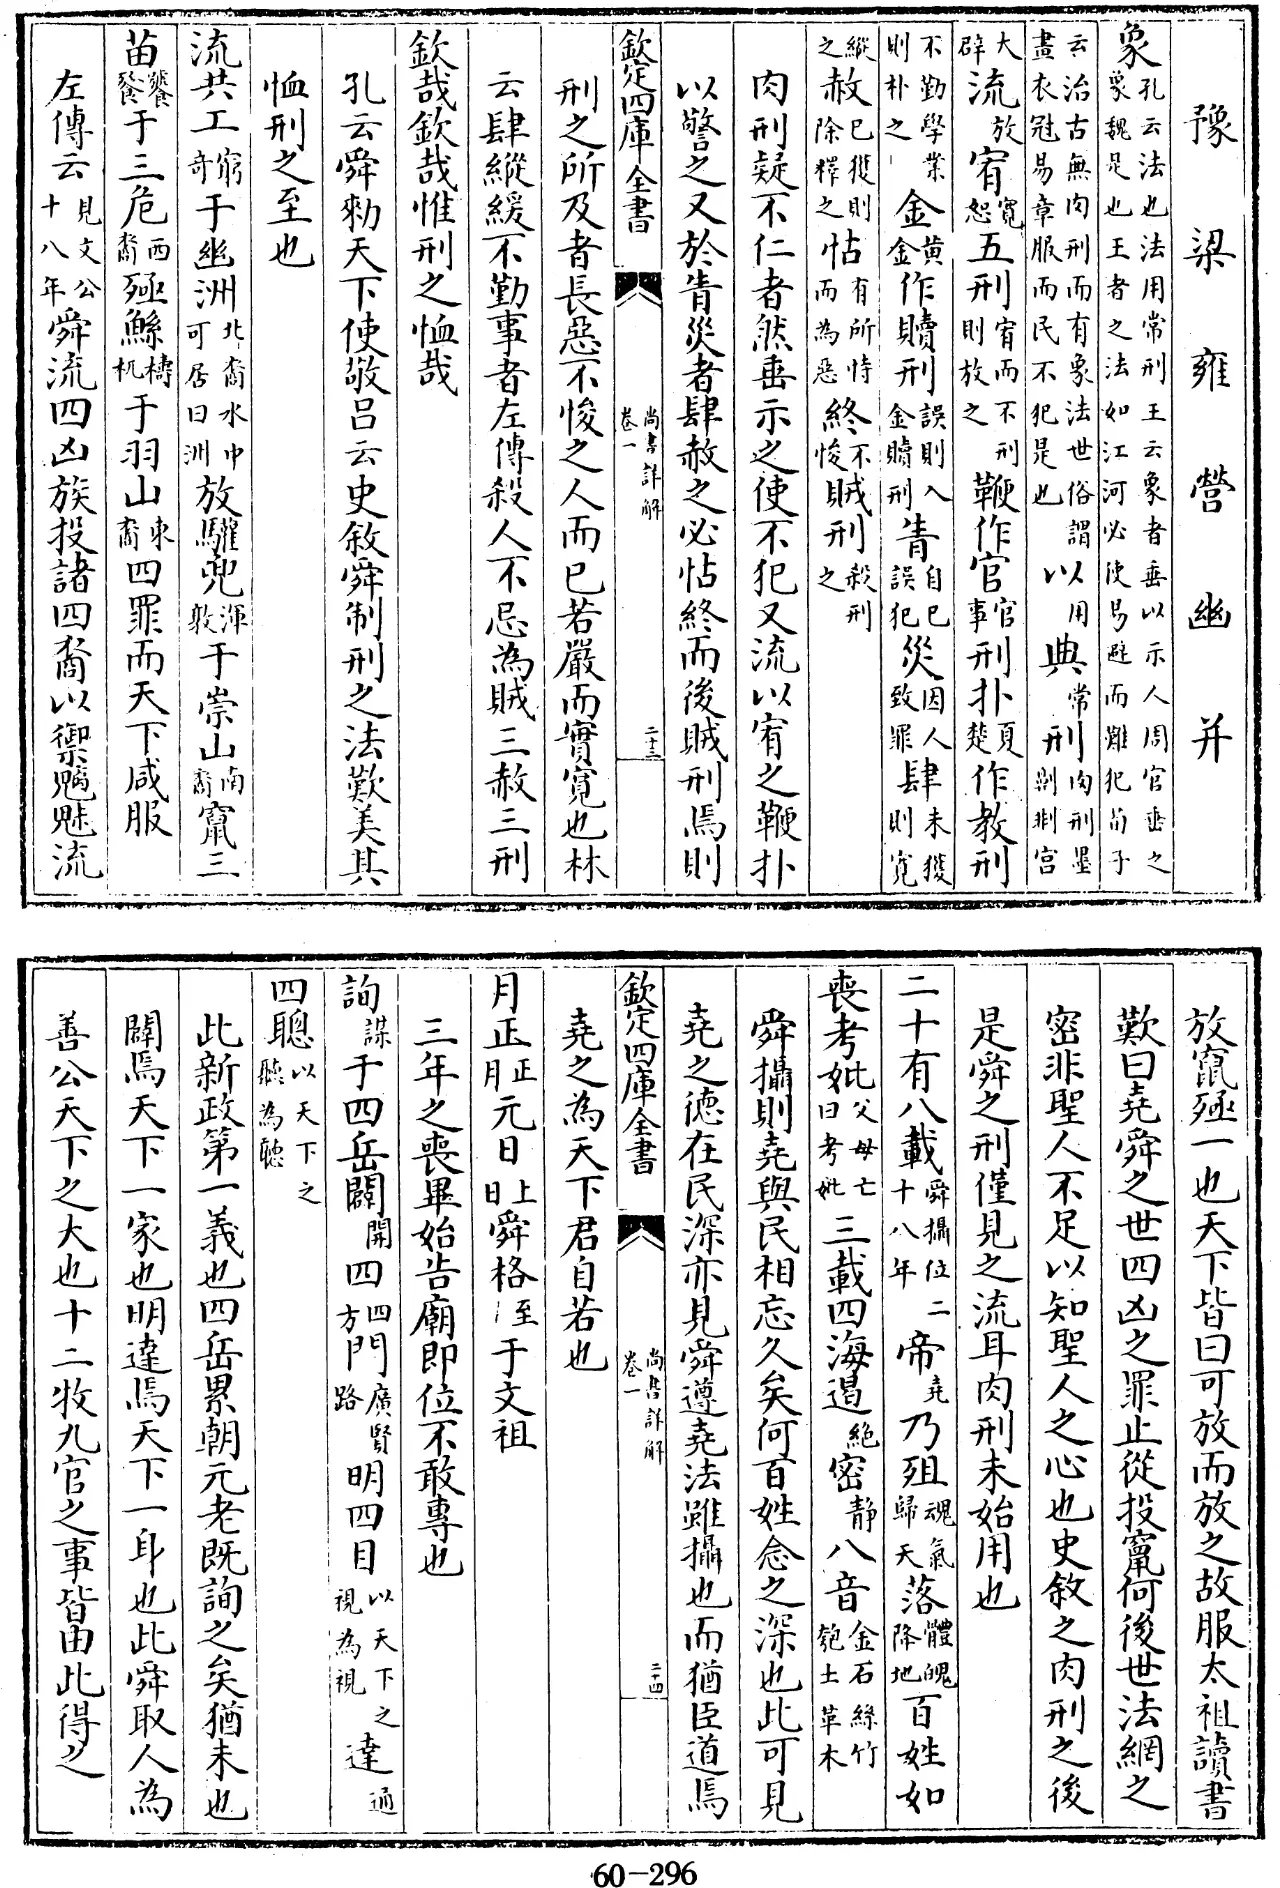 豫梁雍營幽并
象孔云法也法用常刑王云象者垂以示人周官垂之象魏是也王者之法如江河必使易避而難犯荀子
云治古無肉刑而有象法世俗謂畫衣冠易章服而民不犯是也以用典常刑肉刑墨劓剕宫
大辟流放宥寛恕五刑宥而不刑則放之鞭作官官事刑扑夏楚作教刑
不勤學業則朴之金黄金作贖刑誤則入金贖刑眚自已誤犯災因人致罪肆未獲則寛
縱之赦已獲則除釋之怙有所恃而為惡終不悛賊刑殺刑之
肉刑疑不仁者然垂示之使不犯又流以宥之鞭扑
以警之又於眚災者肆赦之必怙終而後賊刑焉則
欽定四庫全書
尚書詳解
卷一
二十三
刑之所及者長惡不悛之人而已若嚴而實寛也林
云肆縱緩不勤事者左傳殺人不忌為賊三赦三刑
欽哉欽哉惟刑之恤哉
孔云舜勑天下使敬呂云史敘舜制刑之法歎美其
恤刑之至也
流共工窮奇于幽洲北裔水中可居曰洲放驩兜渾敦于崇山南裔竄三
苗饕餮于三危西裔殛鯀檮杌于羽山東裔四罪而天下咸服
左傳云見文公十八年舜流四凶族投諸四裔以禦魑魅流
放竄殛一也天下皆曰可放而放之故服太祖讀書
歎曰堯舜之世四凶之罪止從投竄何後世法網之
密非聖人不足以知聖人之心也史敘之肉刑之後
是舜之刑僅見之流耳肉刑未始用也
二十有八載舜攝位二十八年帝堯乃殂魂氣歸天落體魄降地百姓如
喪考妣父母亡曰考妣三載四海遏絶密静八音金石絲竹匏土革木
舜攝則堯與民相忘久矣何百姓念之深也此可見
堯之德在民深亦見舜遵堯法雖攝也而猶臣道焉
欽定四庫全書
尚書詳解
卷一
二十四
堯之為天下君自若也
月正正月元日上日舜格至于文祖
三年之喪畢始告廟即位不敢專也
詢謀于四岳闢開四四方門廣賢路明四目以天下之視為視達通
四聰以天下之聽為聽
此新政第一義也四岳累朝元老既詢之矣猶未也
闢焉天下一家也明達焉天下一身也此舜取人為
善公天下之大也十二牧九官之事皆由此得之
60-296